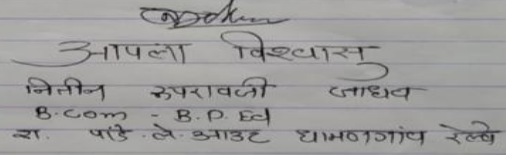 आपला विश्वासु
नितीन रुपरावजी जाधव
B.com - B.P. Ed
रा. पांडे ले आउट धामणगांव रेल्वे